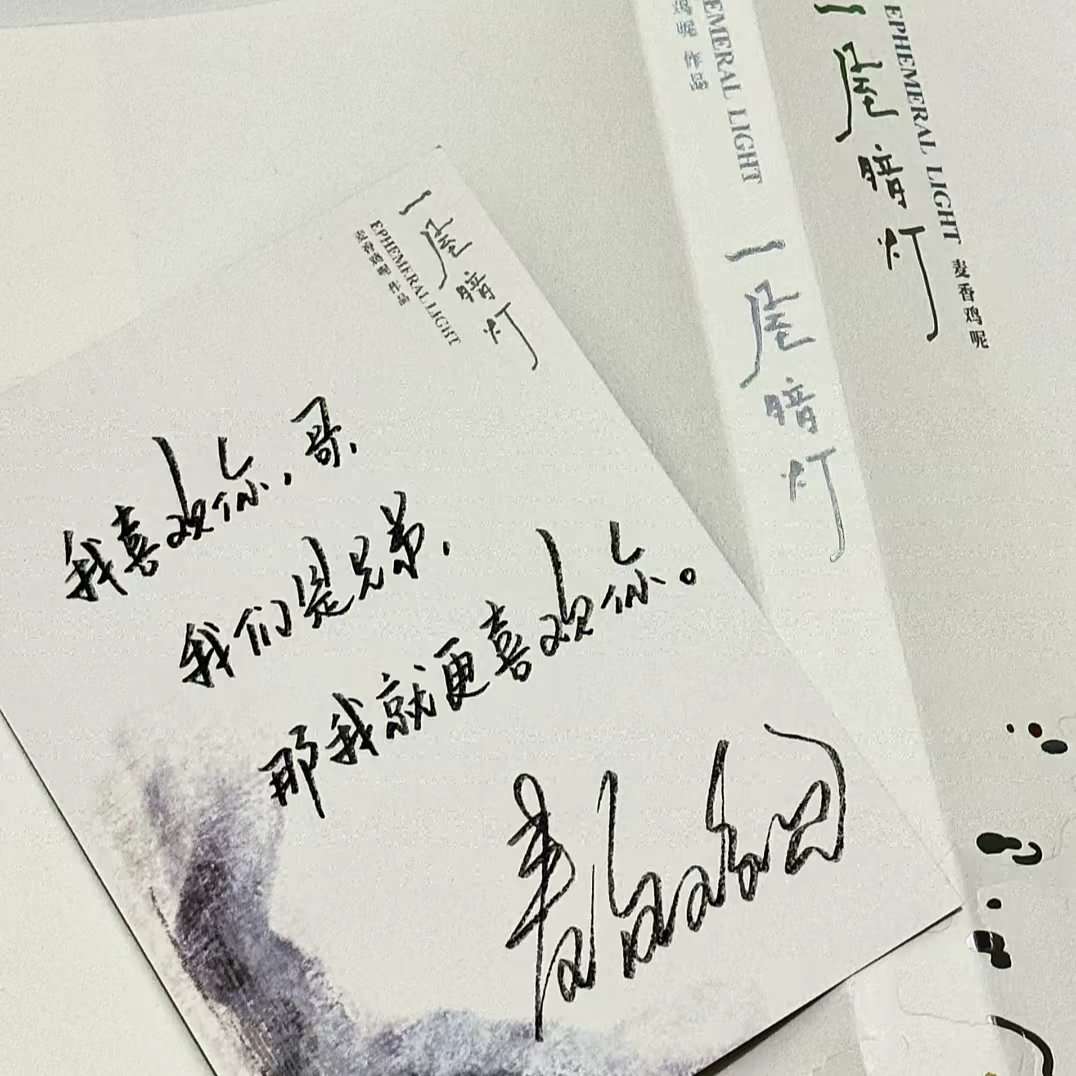 一屋暗灯
EPHEMERAL LIGHT
麦香鸡呢 作品
我喜欢你，哥，
我们是兄弟，
那我就更喜欢你。
麦香鸡呢
鸡呢 作品
EMERAL LIGHT
一屋暗灯
一屋暗灯
EPHEMERAL LIGHT
麦香鸡呢